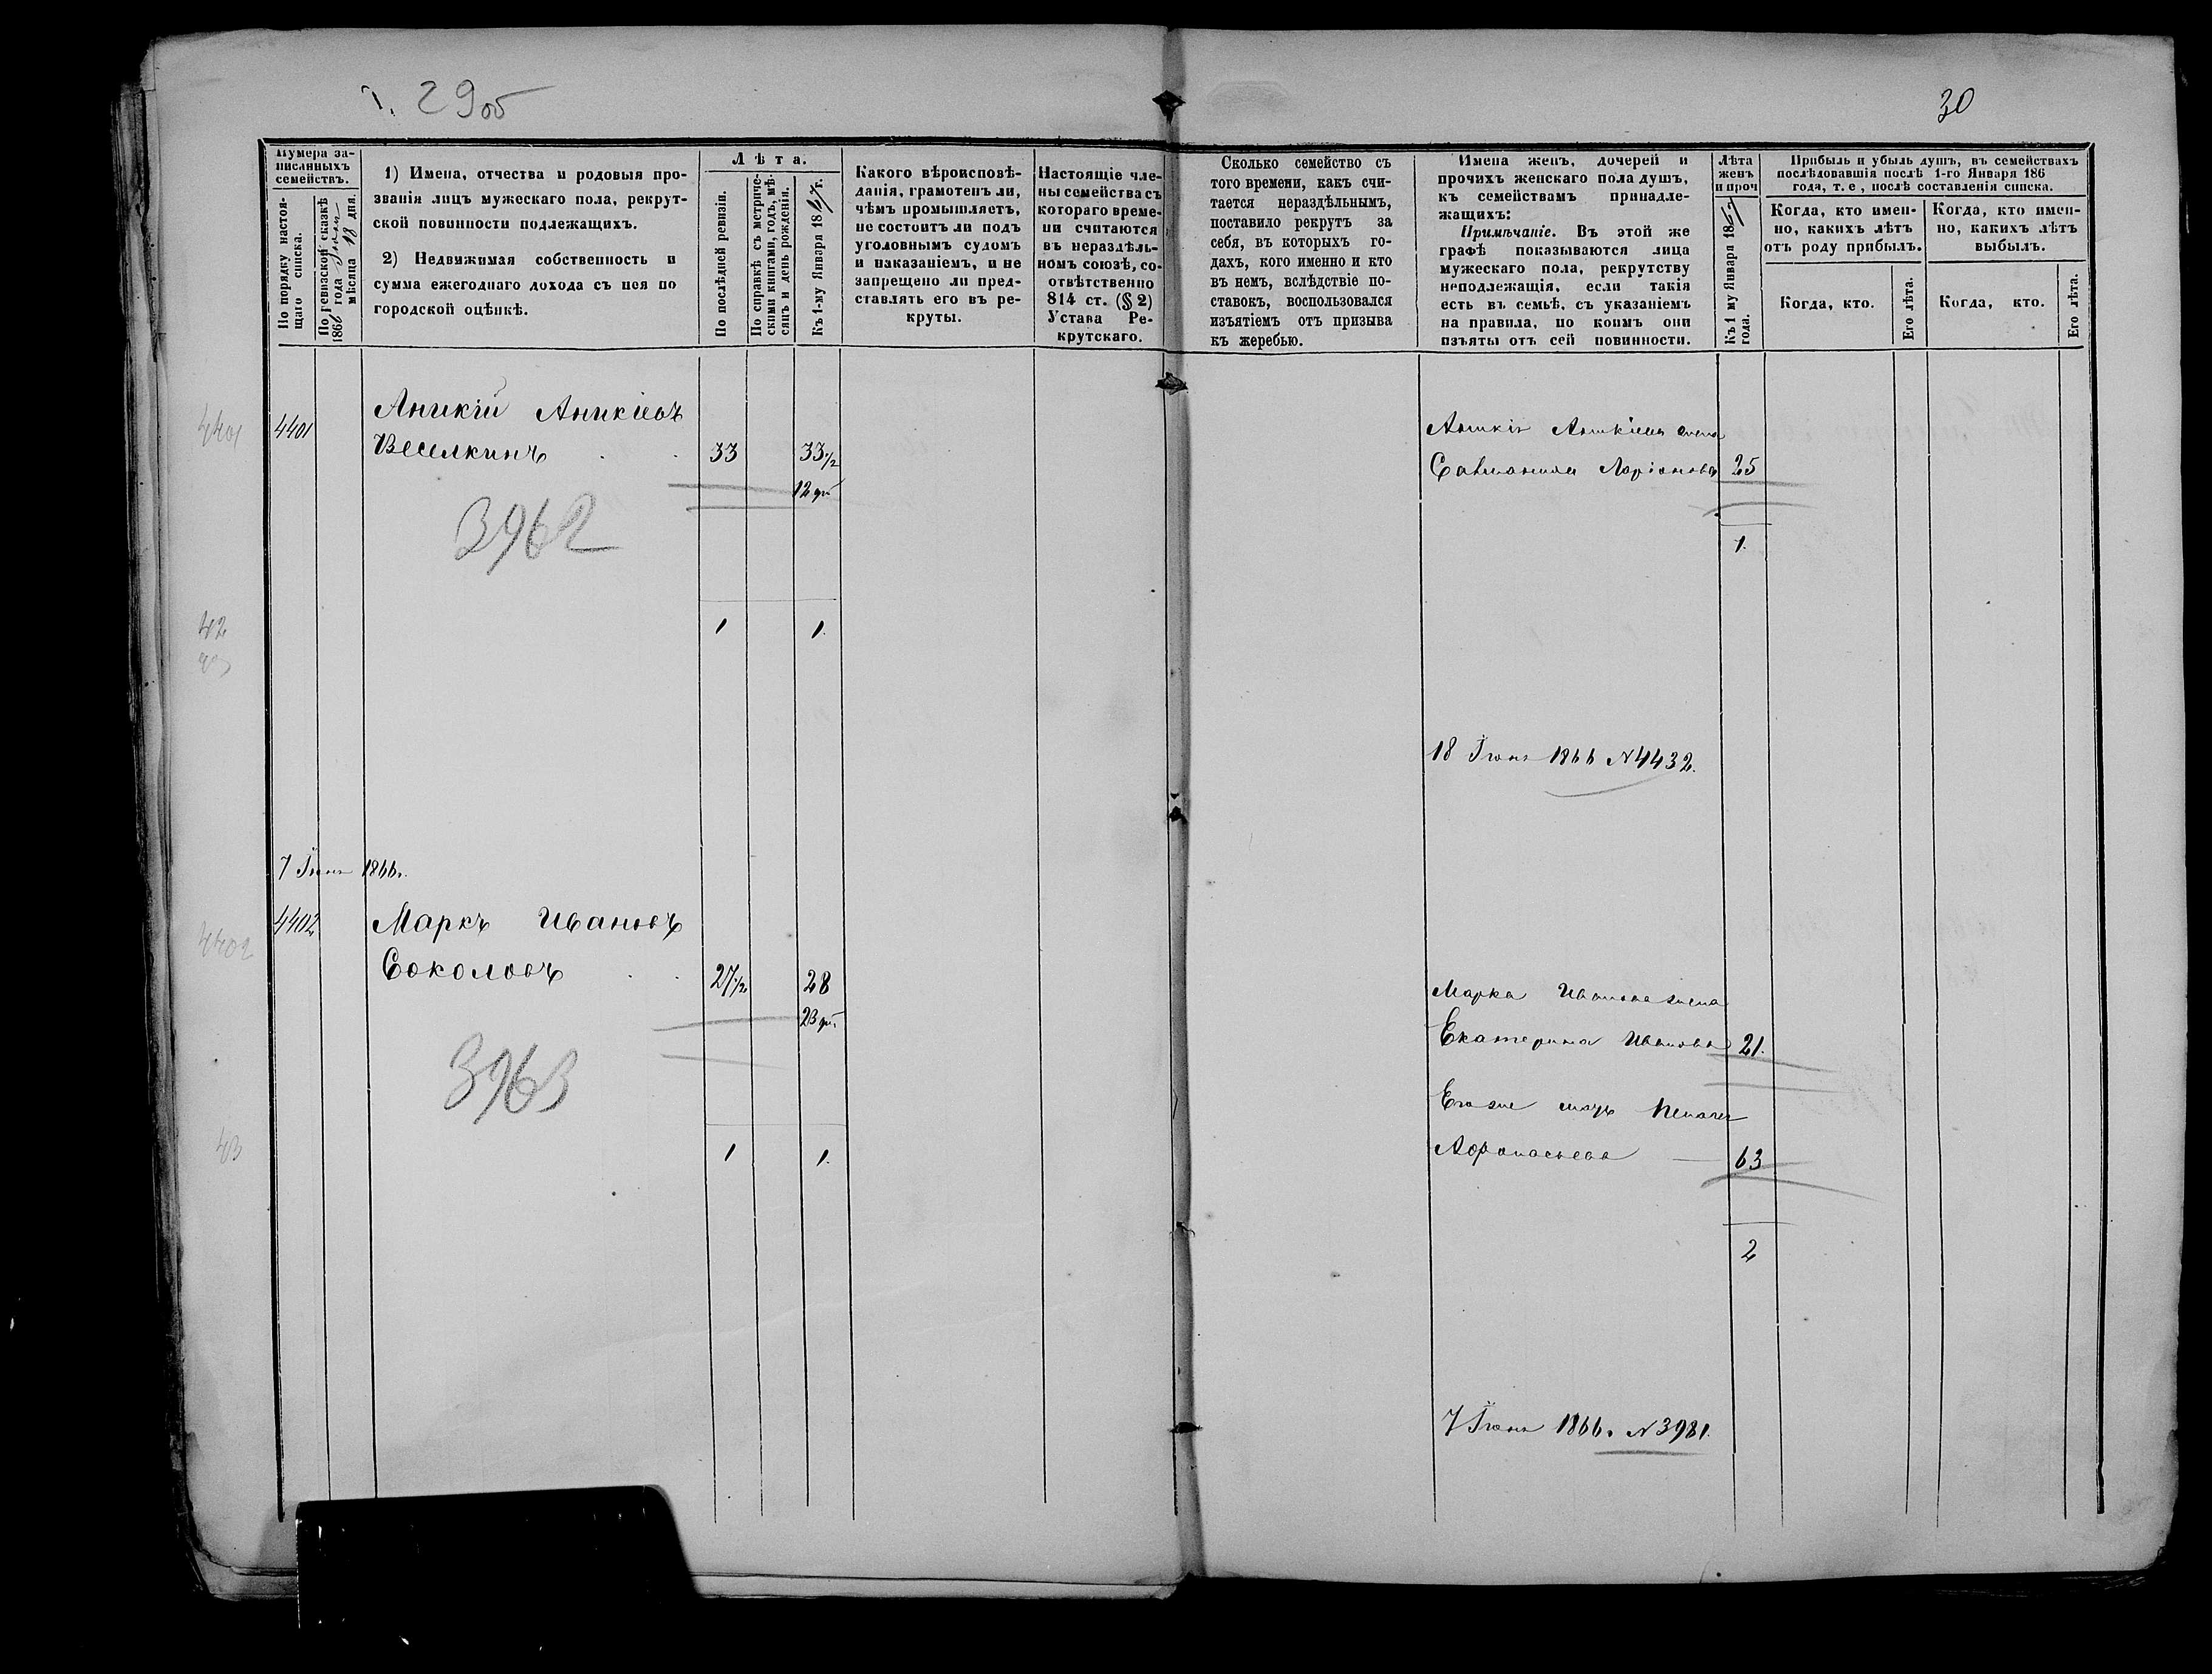 29об
30
Нумера за-
писанныхъ
семействъ.
По порядку настоя-
щаго списка.
По ревизской сказкѣ
1866 года Іюня
мѣсяца 18 дня.
1) Имена, отчества и родовыя про-
званія лицъ мужескаго пола, рекрут-
ской повинности подлежащихъ.
2) Недвижимая собственность и
сумма ежегоднаго дохода съ нея по
городской оцѣнкѣ.
Лѣта.
По послѣдней ревизіи.
По справкѣ съ метриче-
скими книгами, годъ, мѣ-
сяцъ и день рожденія.
Къ 1-му Января 1867 г.
Какого вѣроисповѣ-
данія, грамотенъ ли,
чѣмъ промышляетъ,
не состоитъ ли подъ
уголовнымъ судомъ
и наказаніемъ, и не
запрещено ли пред-
ставлять его въ ре-
круты.
Настоящіе чле-
ны семейства съ
котораго време-
ни считаются
въ нераздѣль-
номъ союзѣ, со-
отвѣтственно
814 ст. (§ 2)
Устава Ре-
крутскаго.
Сколько семейство съ
того времени, какъ счи-
тается нераздѣльнымъ,
поставило рекрутъ за
себя, въ которыхъ го-
дахъ, кого именно и кто
въ немъ, вслѣдствіе по-
ставокъ, воспользовался
изъятіемъ отъ призыва
къ жеребью.
Имена женъ, дочерей и
прочихъ женскаго пола душъ,
къ семействамъ принадле-
жащихъ:
Примѣчаніе. Въ этой же
графѣ показываются лица
мужескаго пола, рекрутству
неподлежащія, если такія
есть въ семьѣ, съ указаніемъ
на правила, по коимъ они
изъяты отъ сей повинности.
Лѣта
женъ
и проч
Къ 1 му Января 1867
года.
Прибыль и убыль душъ, въ семействахъ
послѣдовавшія послѣ 1-го Января 186
года, т. е., послѣ составленія списка.
Когда, кто имен-
но, какихъ лѣтъ
отъ роду прибылъ.
Когда, кто имен-
но, какихъ лѣтъ
выбылъ.
Когда, кто.
Его лѣта.
Когда, кто.
Его лѣта.
4401
4401
Аникій Аникіевъ
Веселкинъ . . 33 33 1/2
12
3962
1 1.
42
Аникія Аникіева жена
Ларіонова 25
1.
18 Іюня 1866 N4432.
7 Іюня 1866.
4402
4402
Маркъ Ивановъ
Соколовъ . . 27 1/2 28
23
3963
1 1.
43
Марка Иванова жена
Екатерина Иванова 21.
Его же мать
Афонасьева — 63
2
7 Іюня 1866. N3981.